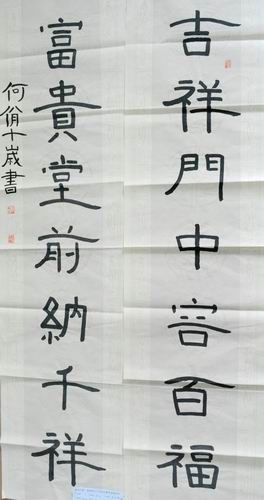 吉祥門中容百福
富貴堂前納千祥
何俏十歲書